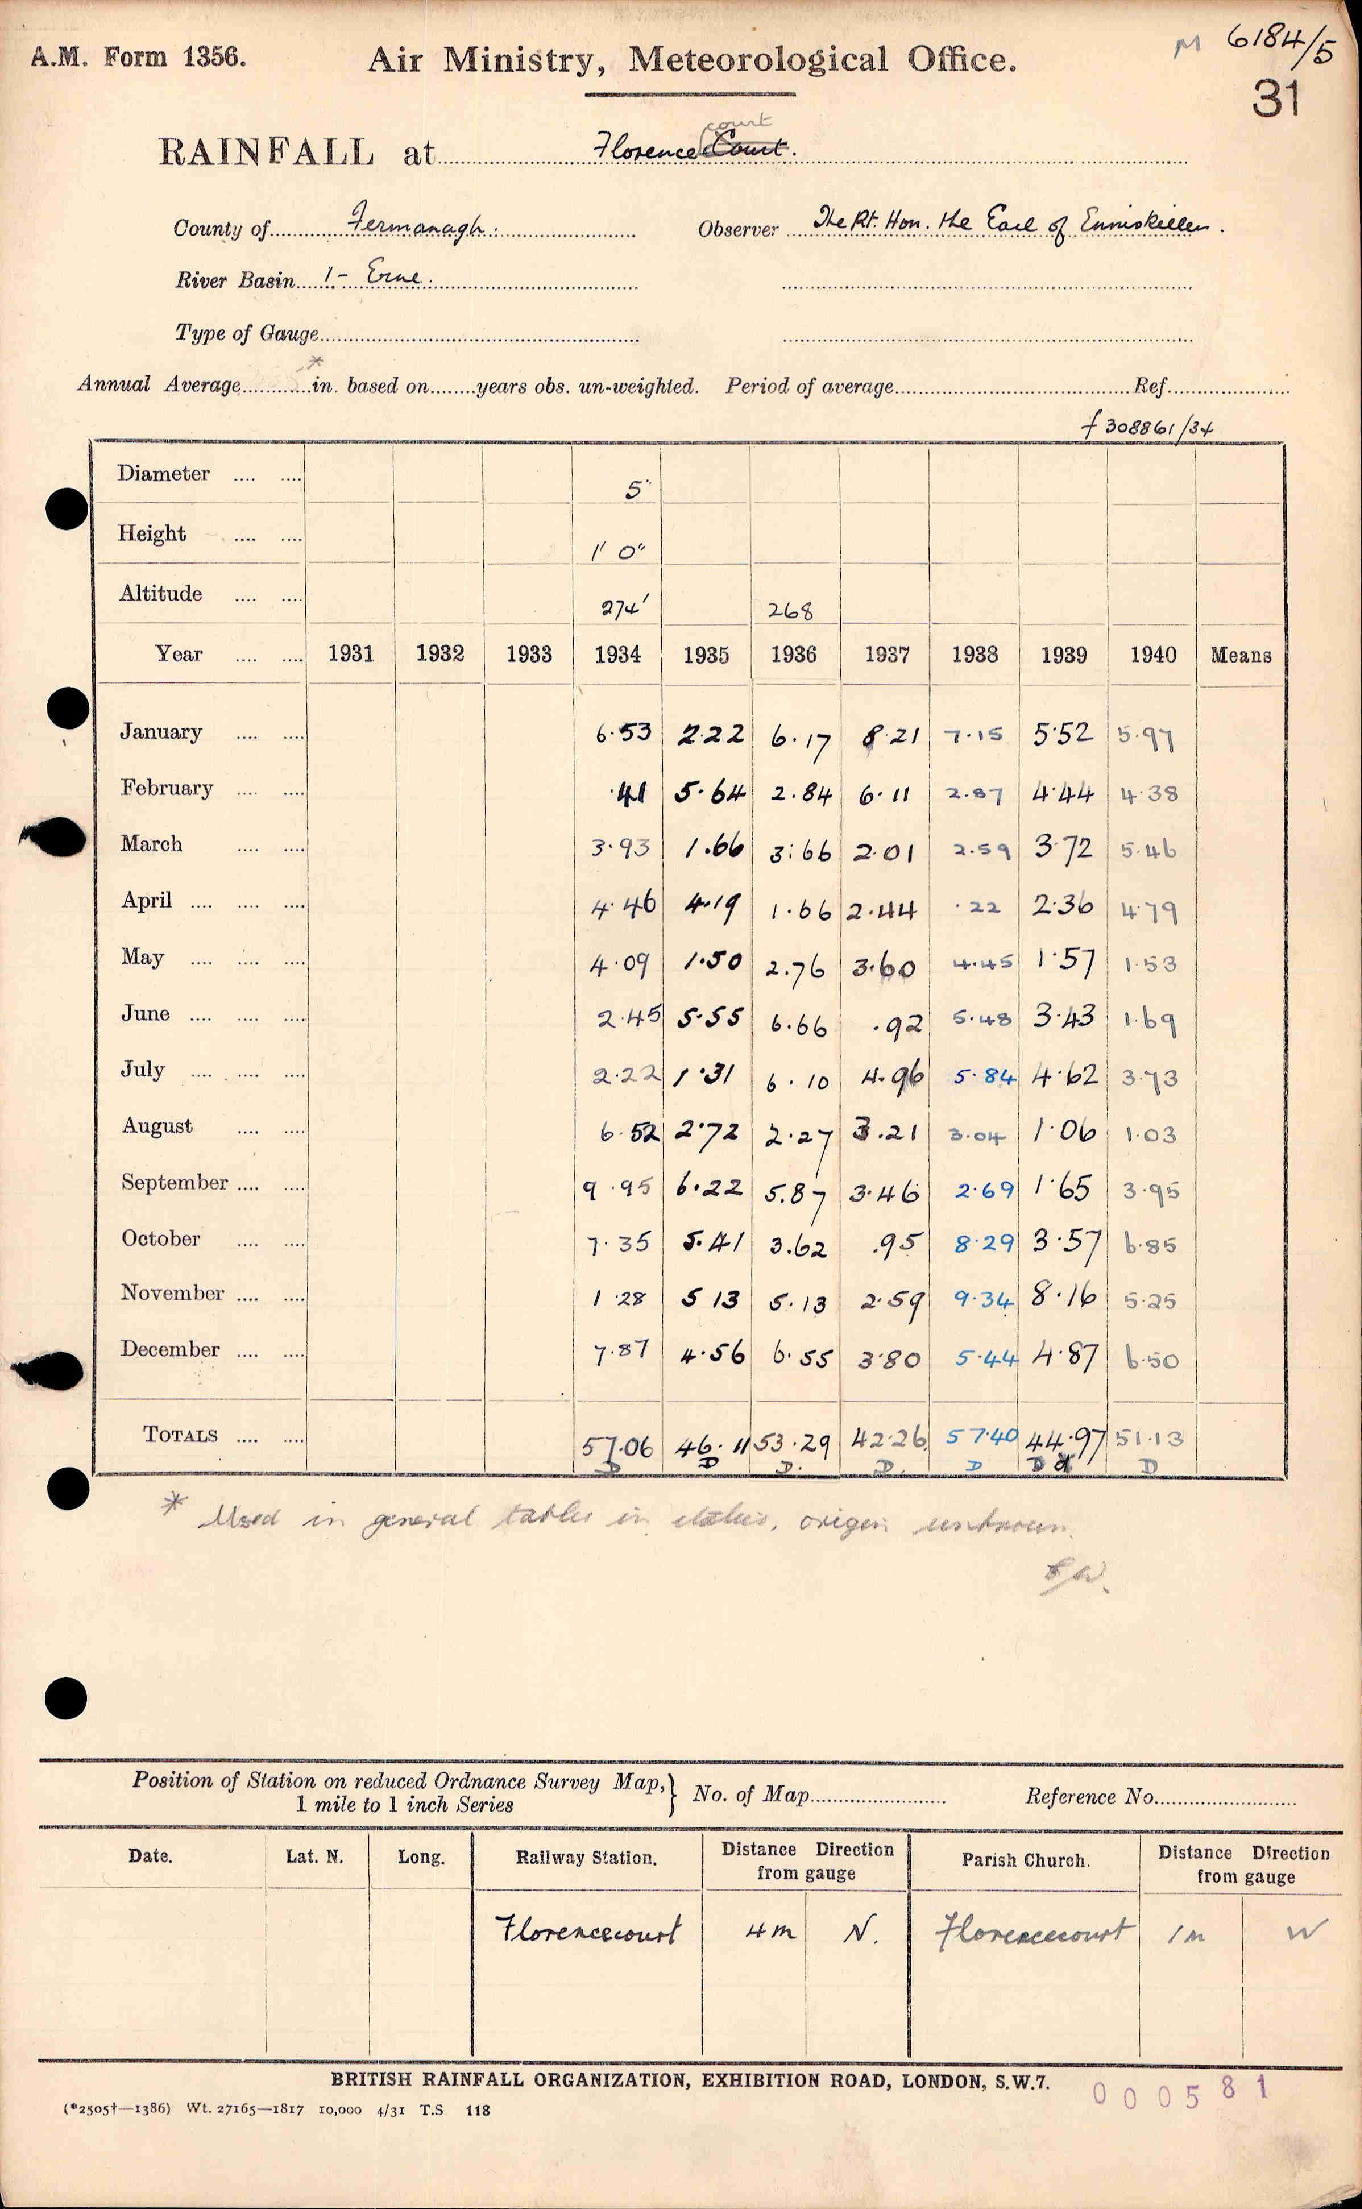 A.M. Form 1356. Air Ministry, Meteorological Office. M 6184/5
31
RAINFALL at Florence Court. court
County of Fermanagh. Observer The Rt. Hon. the Earl of Enniskillen.
River Basin 1 - Erne.
Type of Gauge
Annual Average * in. based on years obs. un-weighted. Period of average Ref.
f 308861/34
Diameter 5"
Height 1' 0"
Altitude 274' 268
Year 1931 1932 1933 1934 1935 1936 1937 1938 1939 1940 Means
January 6.53 2.22 6.17 8.21 7.15 5.52 5.97
February .41 5.64 2.84 6.11 2.87 4.44 4.38
March 3.93 1.66 3.66 2.01 2.59 3.72 5.46
April 4.46 4.19 1.66 2.44 .22 2.36 4.79
May 4.09 1.50 2.76 3.60 4.45 1.57 1.53
June 2.45 5.55 6.66 .92 5.48 3.43 1.69
July 2.22 1.31 6.10 4.96 5.84 4.62 3.73
August 6.52 2.72 2.27 3.21 3.04 1.06 1.03
September 9.95 6.22 5.87 3.46 2.69 1.65 3.95
October 7.35 5.41 3.62 .95 8.29 3.57 6.85
November 1.28 5 13 5.13 2.59 9.34 8.16 5.25
December 7.87 4.56 6.55 3.80 5.44 4.87 6.50
TOTALS 57.06 46.11 53.29 42.26 57.40 44.97 51.13
D D D. D. D D d D
* Used in general tables in italics, origin unknown.
Position of Station on reduced Ordnance Survey Map, } No. of Map Reference No.
1 mile to 1 inch Series
Date. Lat. N. Long. Railway Station. Distance Direction from gauge Parish Church. Distance Direction from gauge
Florencecourt 4m N. Florencecourt 1m W
BRITISH RAINFALL ORGANIZATION, EXHIBITION ROAD, LONDON, S.W.7.
000581
(*2505†—1386) Wt. 27165—1817 10,000 4/31 T.S 118